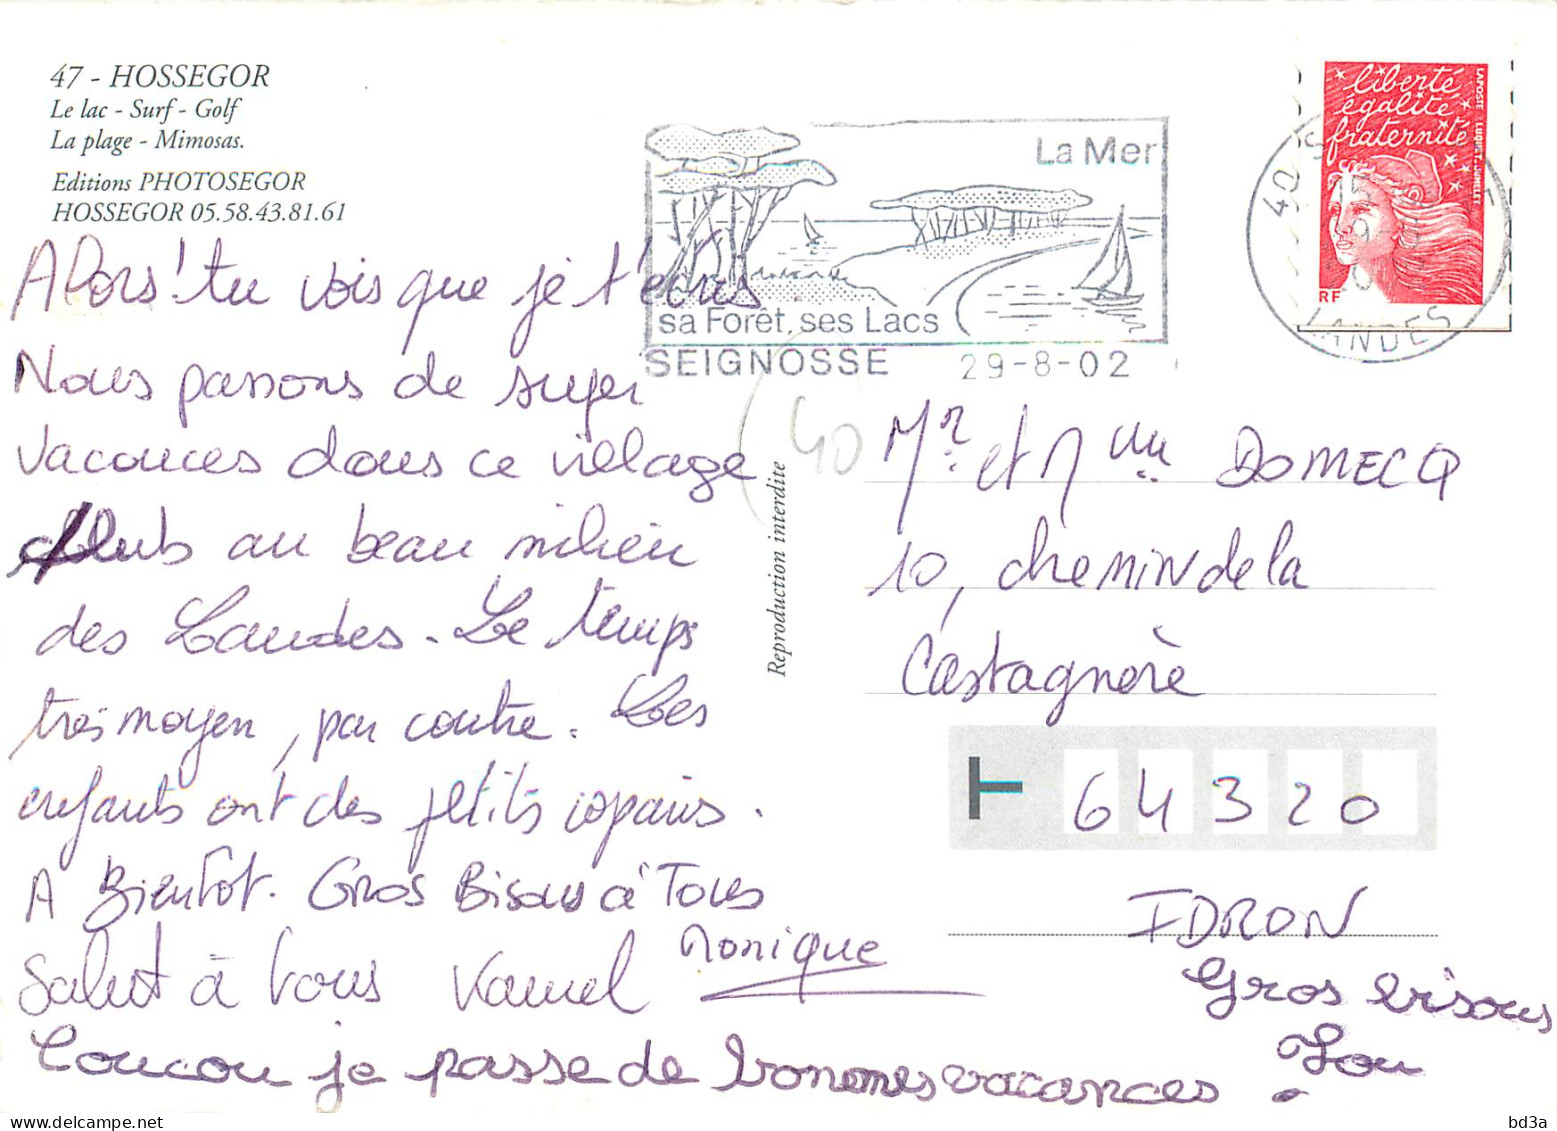 47 - HOSSEGOR
Le lac - Surf - Golf
La plage - Mimosas.
Editions PHOTOSEGOR
HOSSEGOR 05.58.43.81.61
La Mer
sa Forêt, ses Lacs
SEIGNOSSE 29-8-02
liberté
égalité
fraternité
LAPOSTE LUQUET-JUMELET
RF
40 S
LANDES
Alors! tu vois que je t'écris
Nous passons de super
vacances dans ce village
clubs au beau milieu
des Landes. Le temps
très moyen, par contre. Les
enfants ont des petits copains.
A Bientot. Gros Bisous à Tous
Monique
Salut à tous
Coucou je passe de bonnes vacances.
40
Reproduction interdite
Mr. et Mme DOMECQ
10, chemin de la
Castagnère
64320
IDRON
Gros bisous
Lou
bd3a